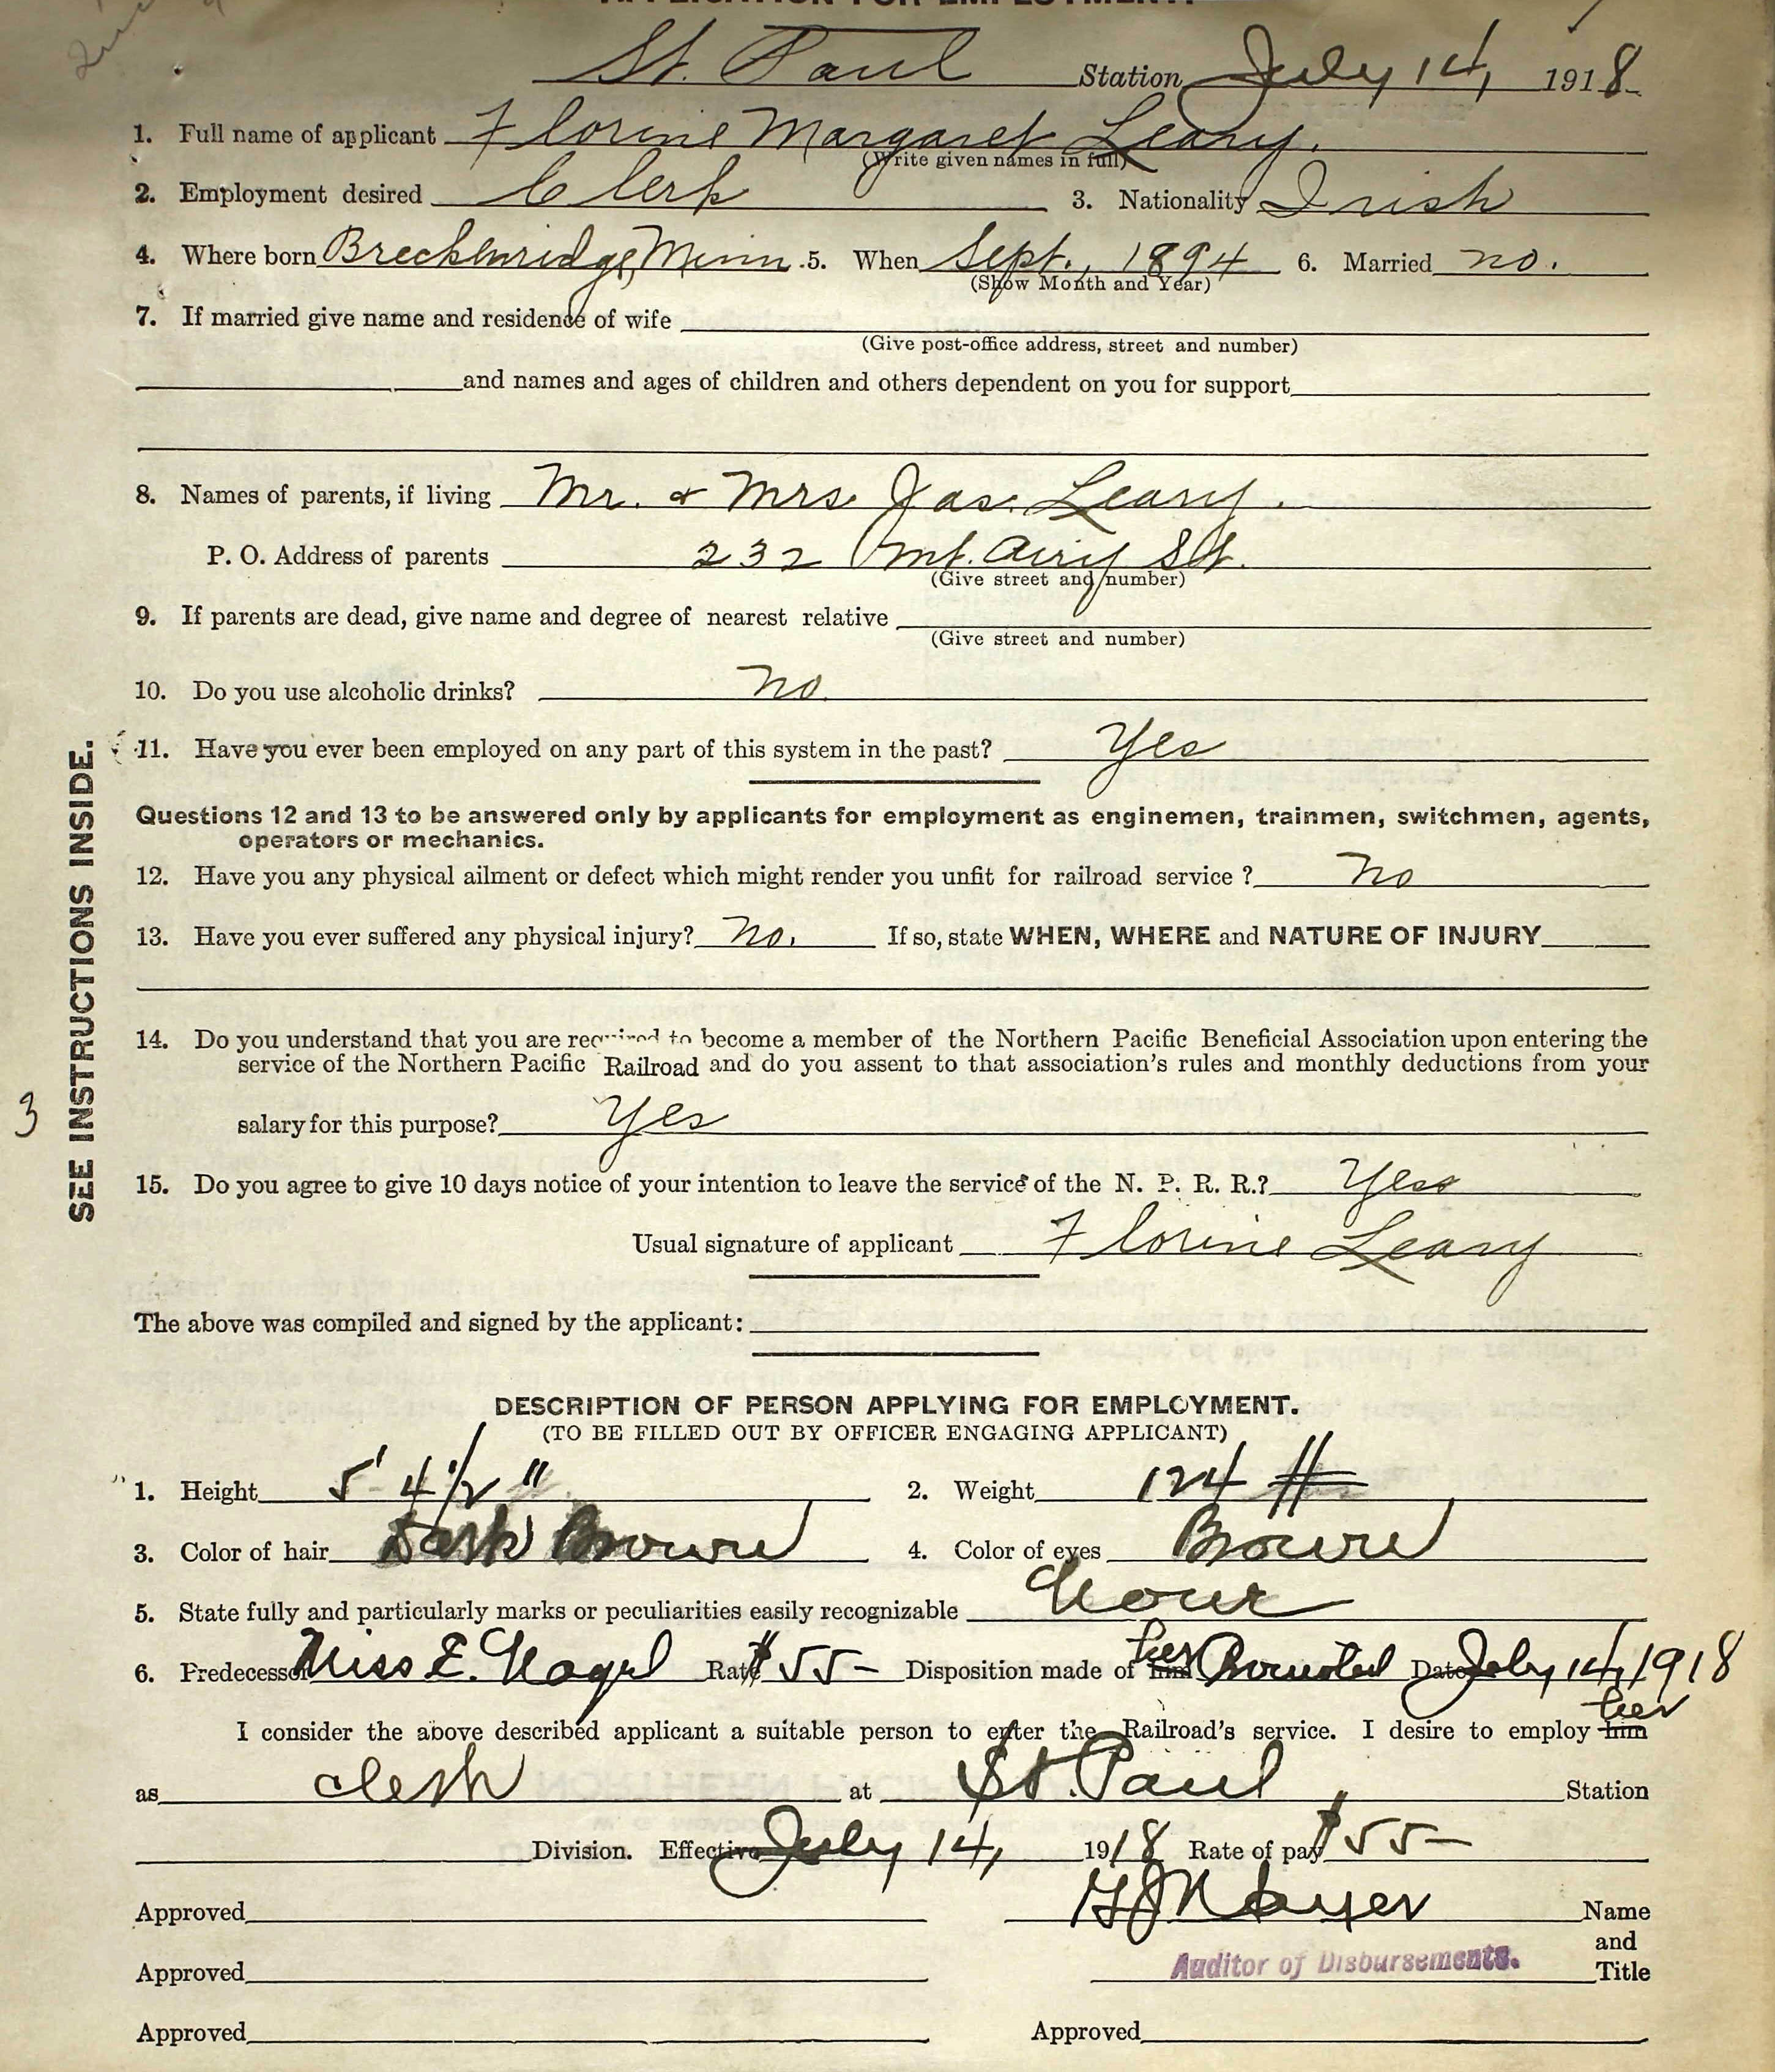 APPLICATION FOR EMPLOYMENT.
St. Paul Station July 14, 1918
1. Full name of applicant Florine Margaret Leary.
(Write given names in full)
2. Employment desired Clerk 3. Nationality Irish
4. Where born Breckenridge, Minn. 5. When Sept., 1894 6. Married no.
(Show Month and Year)
7. If married give name and residence of wife
(Give post-office address, street and number)
and names and ages of children and others dependent on you for support
8. Names of parents, if living Mr. & Mrs Jas. Leary.
P. O. Address of parents 232 Mt. Airy St.
(Give street and number)
9. If parents are dead, give name and degree of nearest relative
(Give street and number)
10. Do you use alcoholic drinks? no.
11. Have you ever been employed on any part of this system in the past? Yes
Questions 12 and 13 to be answered only by applicants for employment as enginemen, trainmen, switchmen, agents,
operators or mechanics.
12. Have you any physical ailment or defect which might render you unfit for railroad service? No
13. Have you ever suffered any physical injury? No. If so, state WHEN, WHERE and NATURE OF INJURY
14. Do you understand that you are required to become a member of the Northern Pacific Beneficial Association upon entering the
service of the Northern Pacific Railroad and do you assent to that association's rules and monthly deductions from your
salary for this purpose? Yes
15. Do you agree to give 10 days notice of your intention to leave the service of the N. P. R. R.? Yes
Usual signature of applicant Florine Leary
The above was compiled and signed by the applicant:
SEE INSTRUCTIONS INSIDE.
3
DESCRIPTION OF PERSON APPLYING FOR EMPLOYMENT.
(TO BE FILLED OUT BY OFFICER ENGAGING APPLICANT)
1. Height 5' 4 1/2" 2. Weight 124 #
3. Color of hair Dark Brown 4. Color of eyes Brown
5. State fully and particularly marks or peculiarities easily recognizable None
6. Predecessor Miss E. Nagel Rate $55- Disposition made of him her Promoted Date July 14, 1918
I consider the above described applicant a suitable person to enter the Railroad's service. I desire to employ him her
as clerk at St. Paul Station
Division. Effective July 14, 1918 Rate of pay $55-
Approved Name
and
Auditor of Disbursements.
Approved Title
Approved Approved